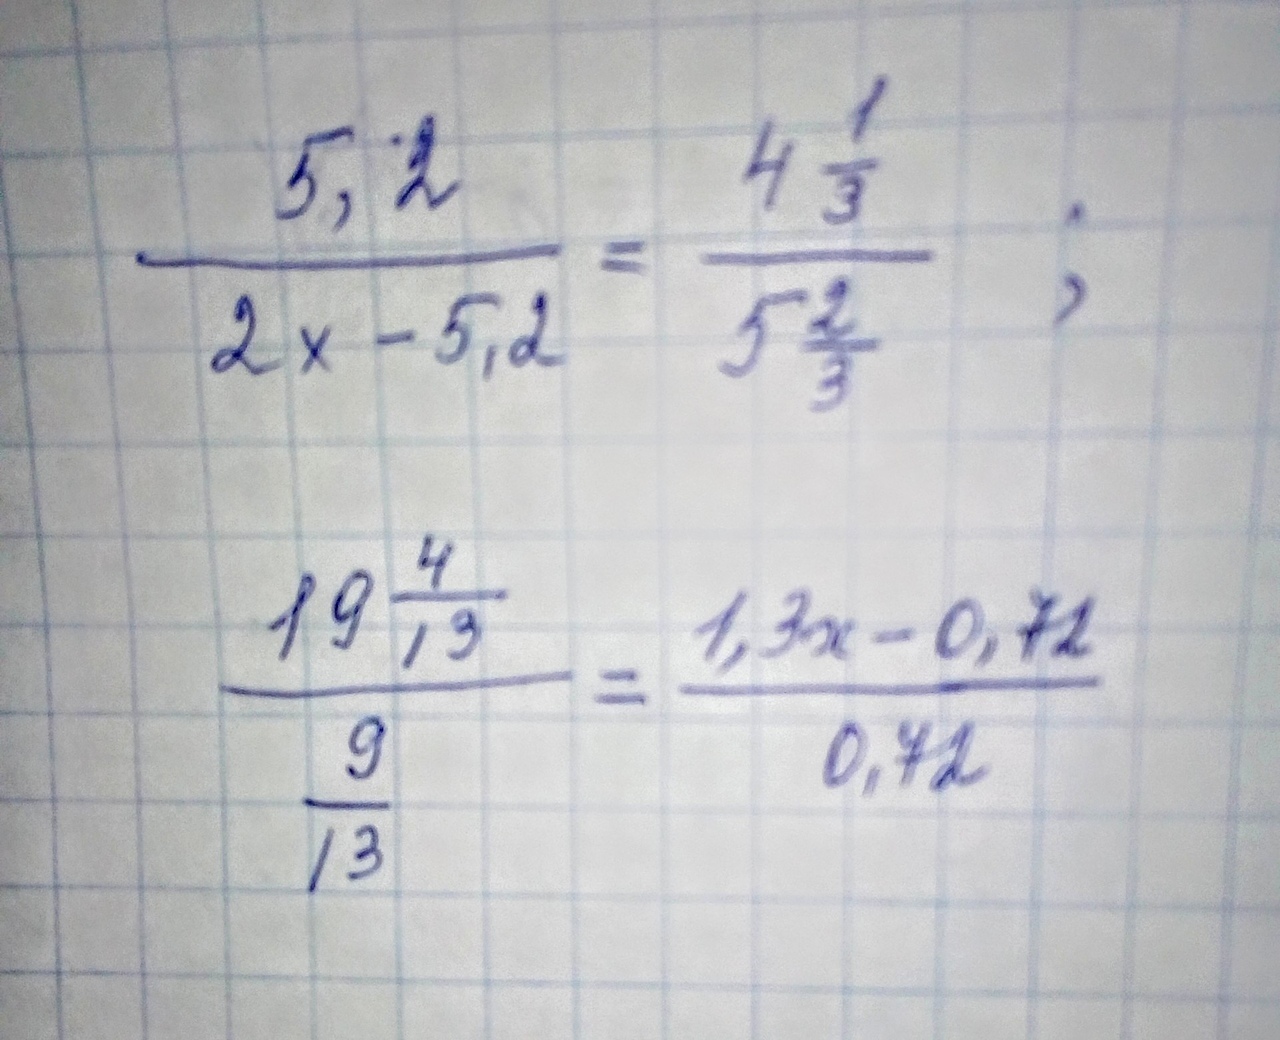 5,2 / (2x - 5,2) = 4 1/3 / 5 2/3 ;
19 4/13 / 9/13 = (1,3x - 0,72) / 0,72